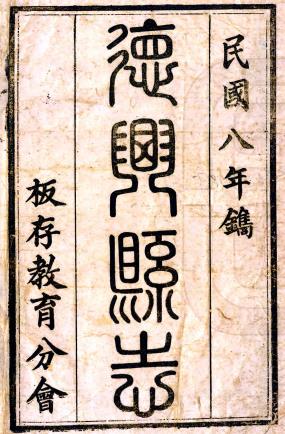 民國八年鐫
德興縣志
板存教育分會